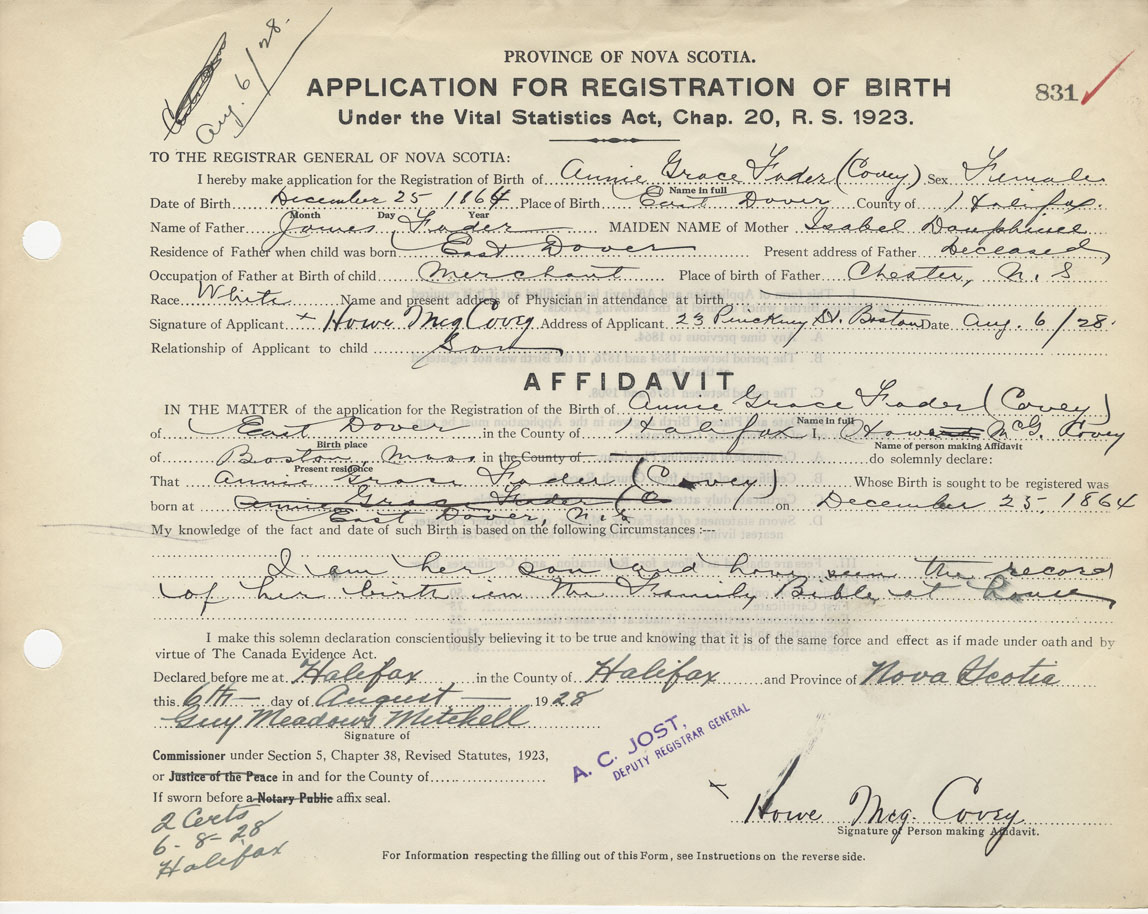 Aug. 6/28.
PROVINCE OF NOVA SCOTIA.
APPLICATION FOR REGISTRATION OF BIRTH
831
Under the Vital Statistics Act, Chap. 20, R. S. 1923.
TO THE REGISTRAR GENERAL OF NOVA SCOTIA:
I hereby make application for the Registration of Birth of Annie Grace Fader (Covey) Sex Female
Name in full
Date of Birth December 25 1864 Place of Birth East Dover County of Halifax.
Month Day Year
Name of Father James Fader MAIDEN NAME of Mother Isabel Dauphinee
Residence of Father when child was born East Dover Present address of Father Deceased
Occupation of Father at Birth of child Merchant Place of birth of Father Chester, N. S
Race White Name and present address of Physician in attendance at birth
Signature of Applicant x Howe McG Covey Address of Applicant 23 Pinckney St. Boston Date Aug. 6/28.
Relationship of Applicant to child Son
AFFIDAVIT
IN THE MATTER of the application for the Registration of the Birth of Annie Grace Fader (Covey)
Name in full
of East Dover in the County of Halifax I, Howe McG. Covey
Birth place Name of person making Affidavit
of Boston, Mass in the County of do solemnly declare:
Present residence
That Annie Grace Fader (Covey) Whose Birth is sought to be registered was
born at Annie Grace Fader (C on December 25, 1864
East Dover, N. S.
My knowledge of the fact and date of such Birth is based on the following Circumstances :--
I am her son and have seen the record
of her birth in the Family Bible at house
I make this solemn declaration conscientiously believing it to be true and knowing that it is of the same force and effect as if made under oath and by
virtue of The Canada Evidence Act.
Declared before me at Halifax in the County of Halifax and Province of Nova Scotia
this 6th day of August 1928
Guy Meadows Mitchell
Signature of
A. C. JOST,
DEPUTY REGISTRAR GENERAL
Commissioner under Section 5, Chapter 38, Revised Statutes, 1923,
or Justice of the Peace in and for the County of
If sworn before a Notary Public affix seal.
x Howe McG. Covey
Signature of Person making Affidavit.
2 Certs
6-8-28
Halifax
For Information respecting the filling out of this Form, see Instructions on the reverse side.